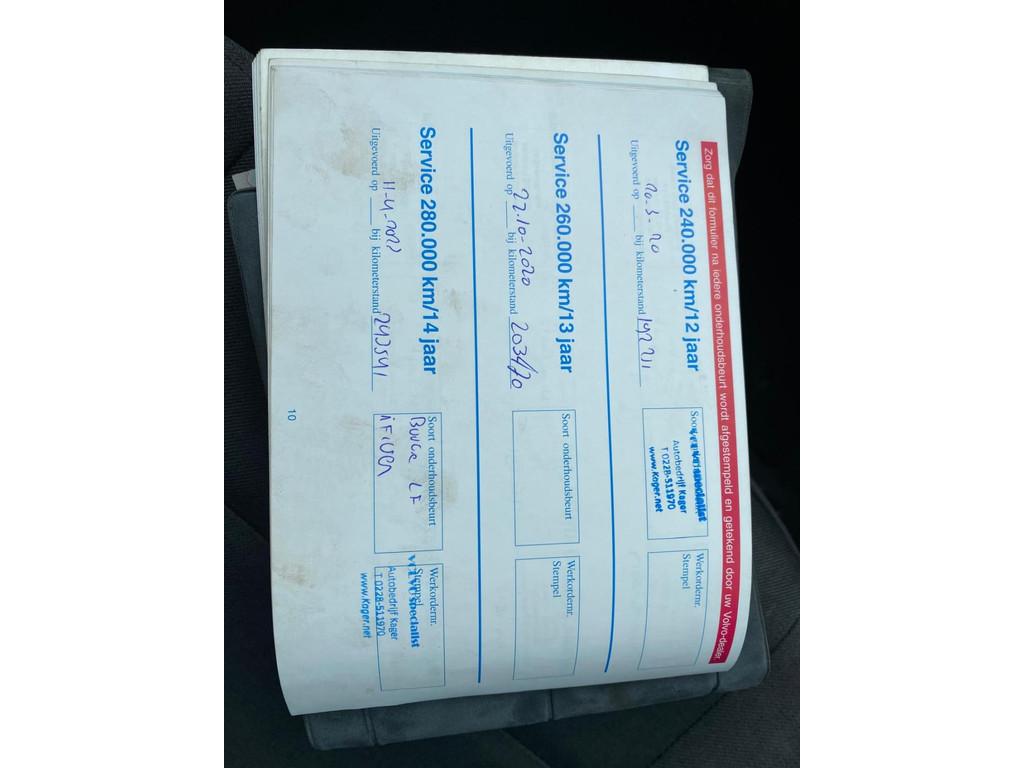 Zorg dat dit formulier na iedere onderhoudsbeurt wordt afgestempeld en getekend door uw Volvo-dealer.
Service 240.000 km/12 jaar
Uitgevoerd op 20-3-20 bij kilometerstand 192211
Soort
specialist
Autobedrijf Kager
T 0228-511970
www.Kager.net
Werkordernr.
Stempel
Service 260.000 km/13 jaar
Uitgevoerd op 22-10-2020 bij kilometerstand 203470
Soort onderhoudsbeurt
Werkordernr.
Stempel
Service 280.000 km/14 jaar
Uitgevoerd op 11-4-2022 bij kilometerstand 242541
Soort onderhoudsbeurt
Werkordernr.
Stempel
VOLVO specialist
Autobedrijf Kager
T 0228-511970
www.Kager.net
10